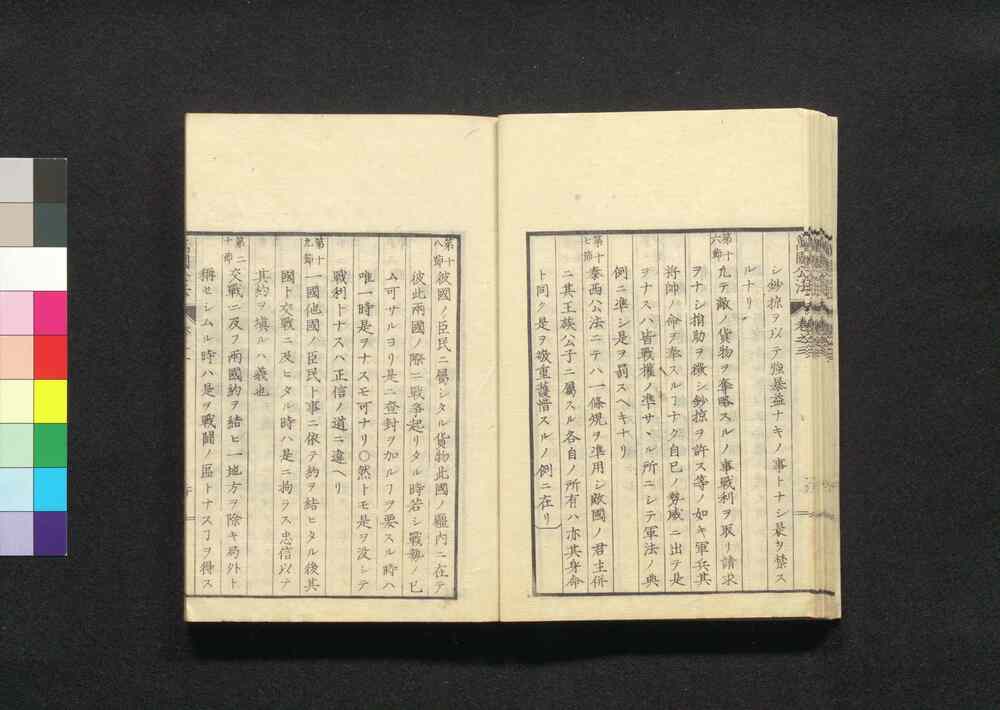 シ鈔掠ヲ以テ強暴益ナキノ事トナシ最ヲ禁ス
ルナリ
第十六節 凡テ敵ノ貨物ヲ奪略スルノ事戰利ヲ取リ請求
ヲナシ捐助ヲ徴シ鈔掠ヲ許ス等ノ如キ軍兵其
将帥ノ命ヲ奉スルヿナク自已ノ勢威ニ出テ是
ヲナスハ皆戰權ノ準サヽル所ニシテ軍法ノ典
例ニ準シ是ヲ罰スヘキナリ
第十七節 泰西公法ニテハ一條規ヲ準用シ敵國ノ君主併
ニ其王族公子ニ屬スル各自ノ所有ハ亦其身命
ト同ク是ヲ嚴重護惜スルノ例ニ在リ
第十八節 彼國ノ臣民ニ屬シタル貨物此國ノ疆内ニ在テ
彼此兩國ノ際ニ戰爭起リタル時若シ戰勢ノ已
ム可サルヨリ是ニ査封ヲ加ルヿヲ要スル時ハ
唯一時是ヲナスモ可ナリ〇然トモ是ヲ没シテ
戰利トナスハ正信ノ道ニ違ヘリ
第十九節 一國他國ノ臣民ト事ニ依テ約ヲ結ヒタル後其
國ト交戰ニ及ヒタル時ハ是ニ拘ラス忠信以テ
其約ヲ塡ルハ義也
第二十節 交戰ニ及フ兩國約ヲ結ヒ一地方ヲ除キ局外ト
稱セシムル時ハ是ヲ戰鬪ノ區トナスヿヲ得ス